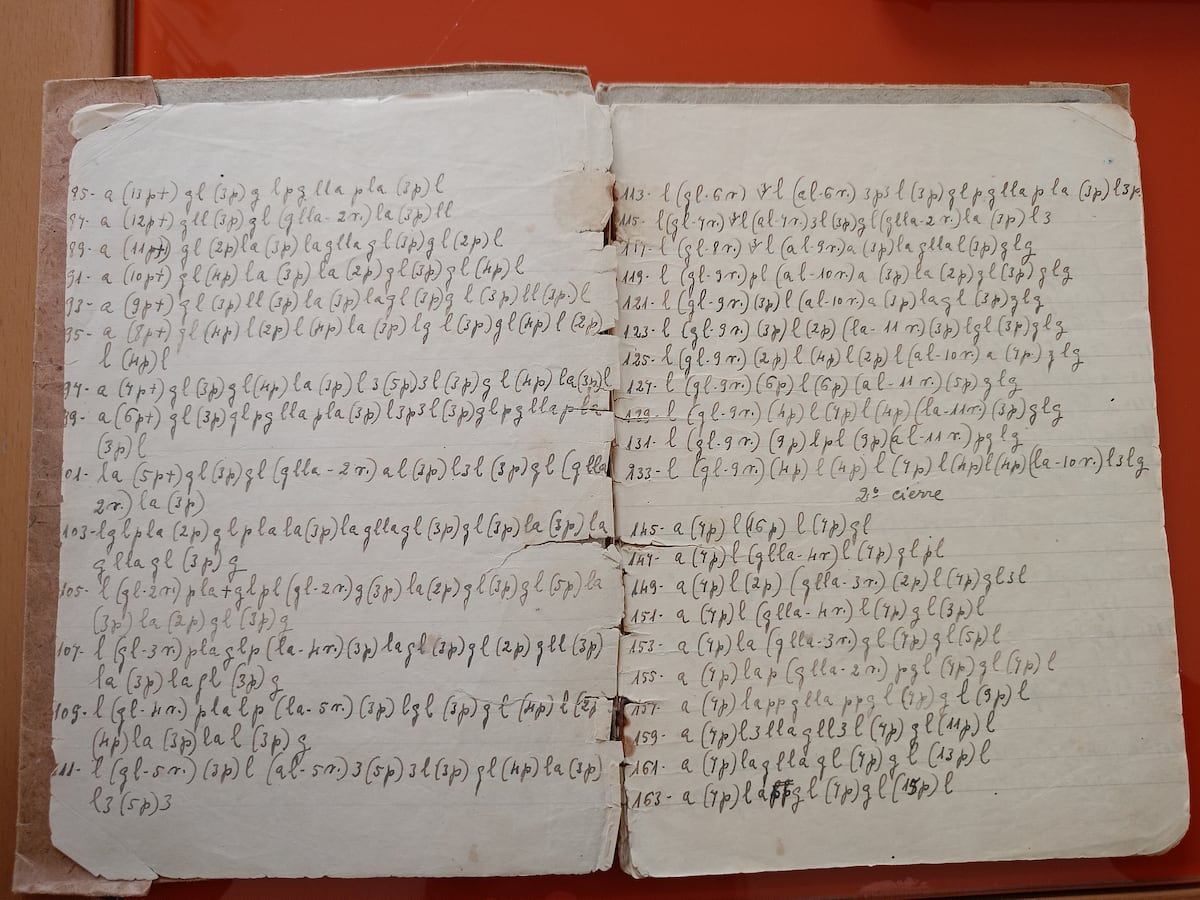 85- a (13pt) gl (3p) g lpg lla pla (3p) l
87- a (12pt) gll (3p) gl (glla-2r.) la (3p) ll
89- a (11pt) gl (2p) la (3p) lagllagl (3p) gl (2p) l
91- a (10pt) gl (4p) la (3p) la (2p) gl (3p) gl (4p) l
93- a (9pt) gl (3p) ll (3p) la (3p) lagl (3p) g l (3p) ll (3p) l
95- a (8pt) gl (4p) l (2p) l (4p) la (3p) lg l (3p) gl (4p) l (2p)
l (4p) l
97- a (7pt) gl (3p) gl (4p) la (3p) l 3 (5p) 3 l (3p) g l (4p) la (3p) l
99- a (6pt) gl (3p) glpg lla pla (3p) l3p3l (3p) glpg lla pla
(3p) l
01- la (5pt) gl (3p) gl (glla - 2r.) al (3p) l3l (3p) gl (glla
2r.) la (3p)
103- lgl pla (2p) gl pla la (3p) lagllagl (3p) gl (3p) la (3p) la
gllagl (3p) g
105- l (gl-2r.) pla+gl pl (gl-2r.) g (3p) la (2p) gl (3p) gl (5p) la
(3p) la (2p) gl (3p) g
107- l (gl-3r.) plaglp (la-4r.) (3p) lagl (3p) gl (2p) gll (3p)
la (3p) lagl (3p) g
109- l (gl-4r.) pla lp (la-5r.) (3p) lgl (3p) gl (4p) l (2p
(4p) la (3p) la l (3p) g
111- l (gl-5r.) (3p) l (al-5r.) 3 (5p) 3l (3p) gl (4p) la (3p)
l3 (5p) 3
113- l (gl-6r.) l (al-6r.) 3p3 l (3p) glpg lla pla (3p) l3p.
115- l (gl-7r.) l (al-7r.) 3l (3p) gl (glla-2r.) la (3p) l3
117- l (gl-8r.) l (al-9r.) a (3p) lagllal (3p) glg
119- l (gl-9r.) pl (al-10r.) a (3p) la (2p) gl (3p) glg
121- l (gl-9r.) (3p) l (al-10r.) a (3p) lagl (3p) glg
123- l (gl-9r.) (3p) l (2p) (la-11r.) (3p) lgl (3p) glg
125- l (gl-9r.) (2p) l (4p) l (2p) l (al-10r.) a (7p) glg
127- l (gl-9r.) (6p) l (6p) (al-11r.) (5p) glg
129- l (gl-9r.) (4p) l (7p) l (4p) (la-11r.) (3p) glg
131- l (gl-9r.) (9p) lpl (9p) (al-11r.) pglg
133- l (gl-9r.) (4p) l (4p) l (7p) l (4p) l (4p) (la-10r.) l3lg
2º cierre
145- a (7p) l (16p) l (7p) gl
147- a (7p) l (glla-4r) l (7p) gl pl
149- a (7p) l (2p) (glla-3r.) (2p) l (7p) gl3l
151- a (7p) l (glla-4r.) l (7p) gl (3p) l
153- a (7p) la (glla-3r.) gl (7p) gl (5p) l
155- a (7p) lap (glla-2r.) pgl (7p) gl (7p) l
157- a (7p) lappglla ppg l (7p) g l (9p) l
159- a (7p) l3llagll3l (7p) gl (11p) l
161- a (7p) lagllagl (7p) gl (13p) l
163- a (7p) la gl (7p) gl (15p) l